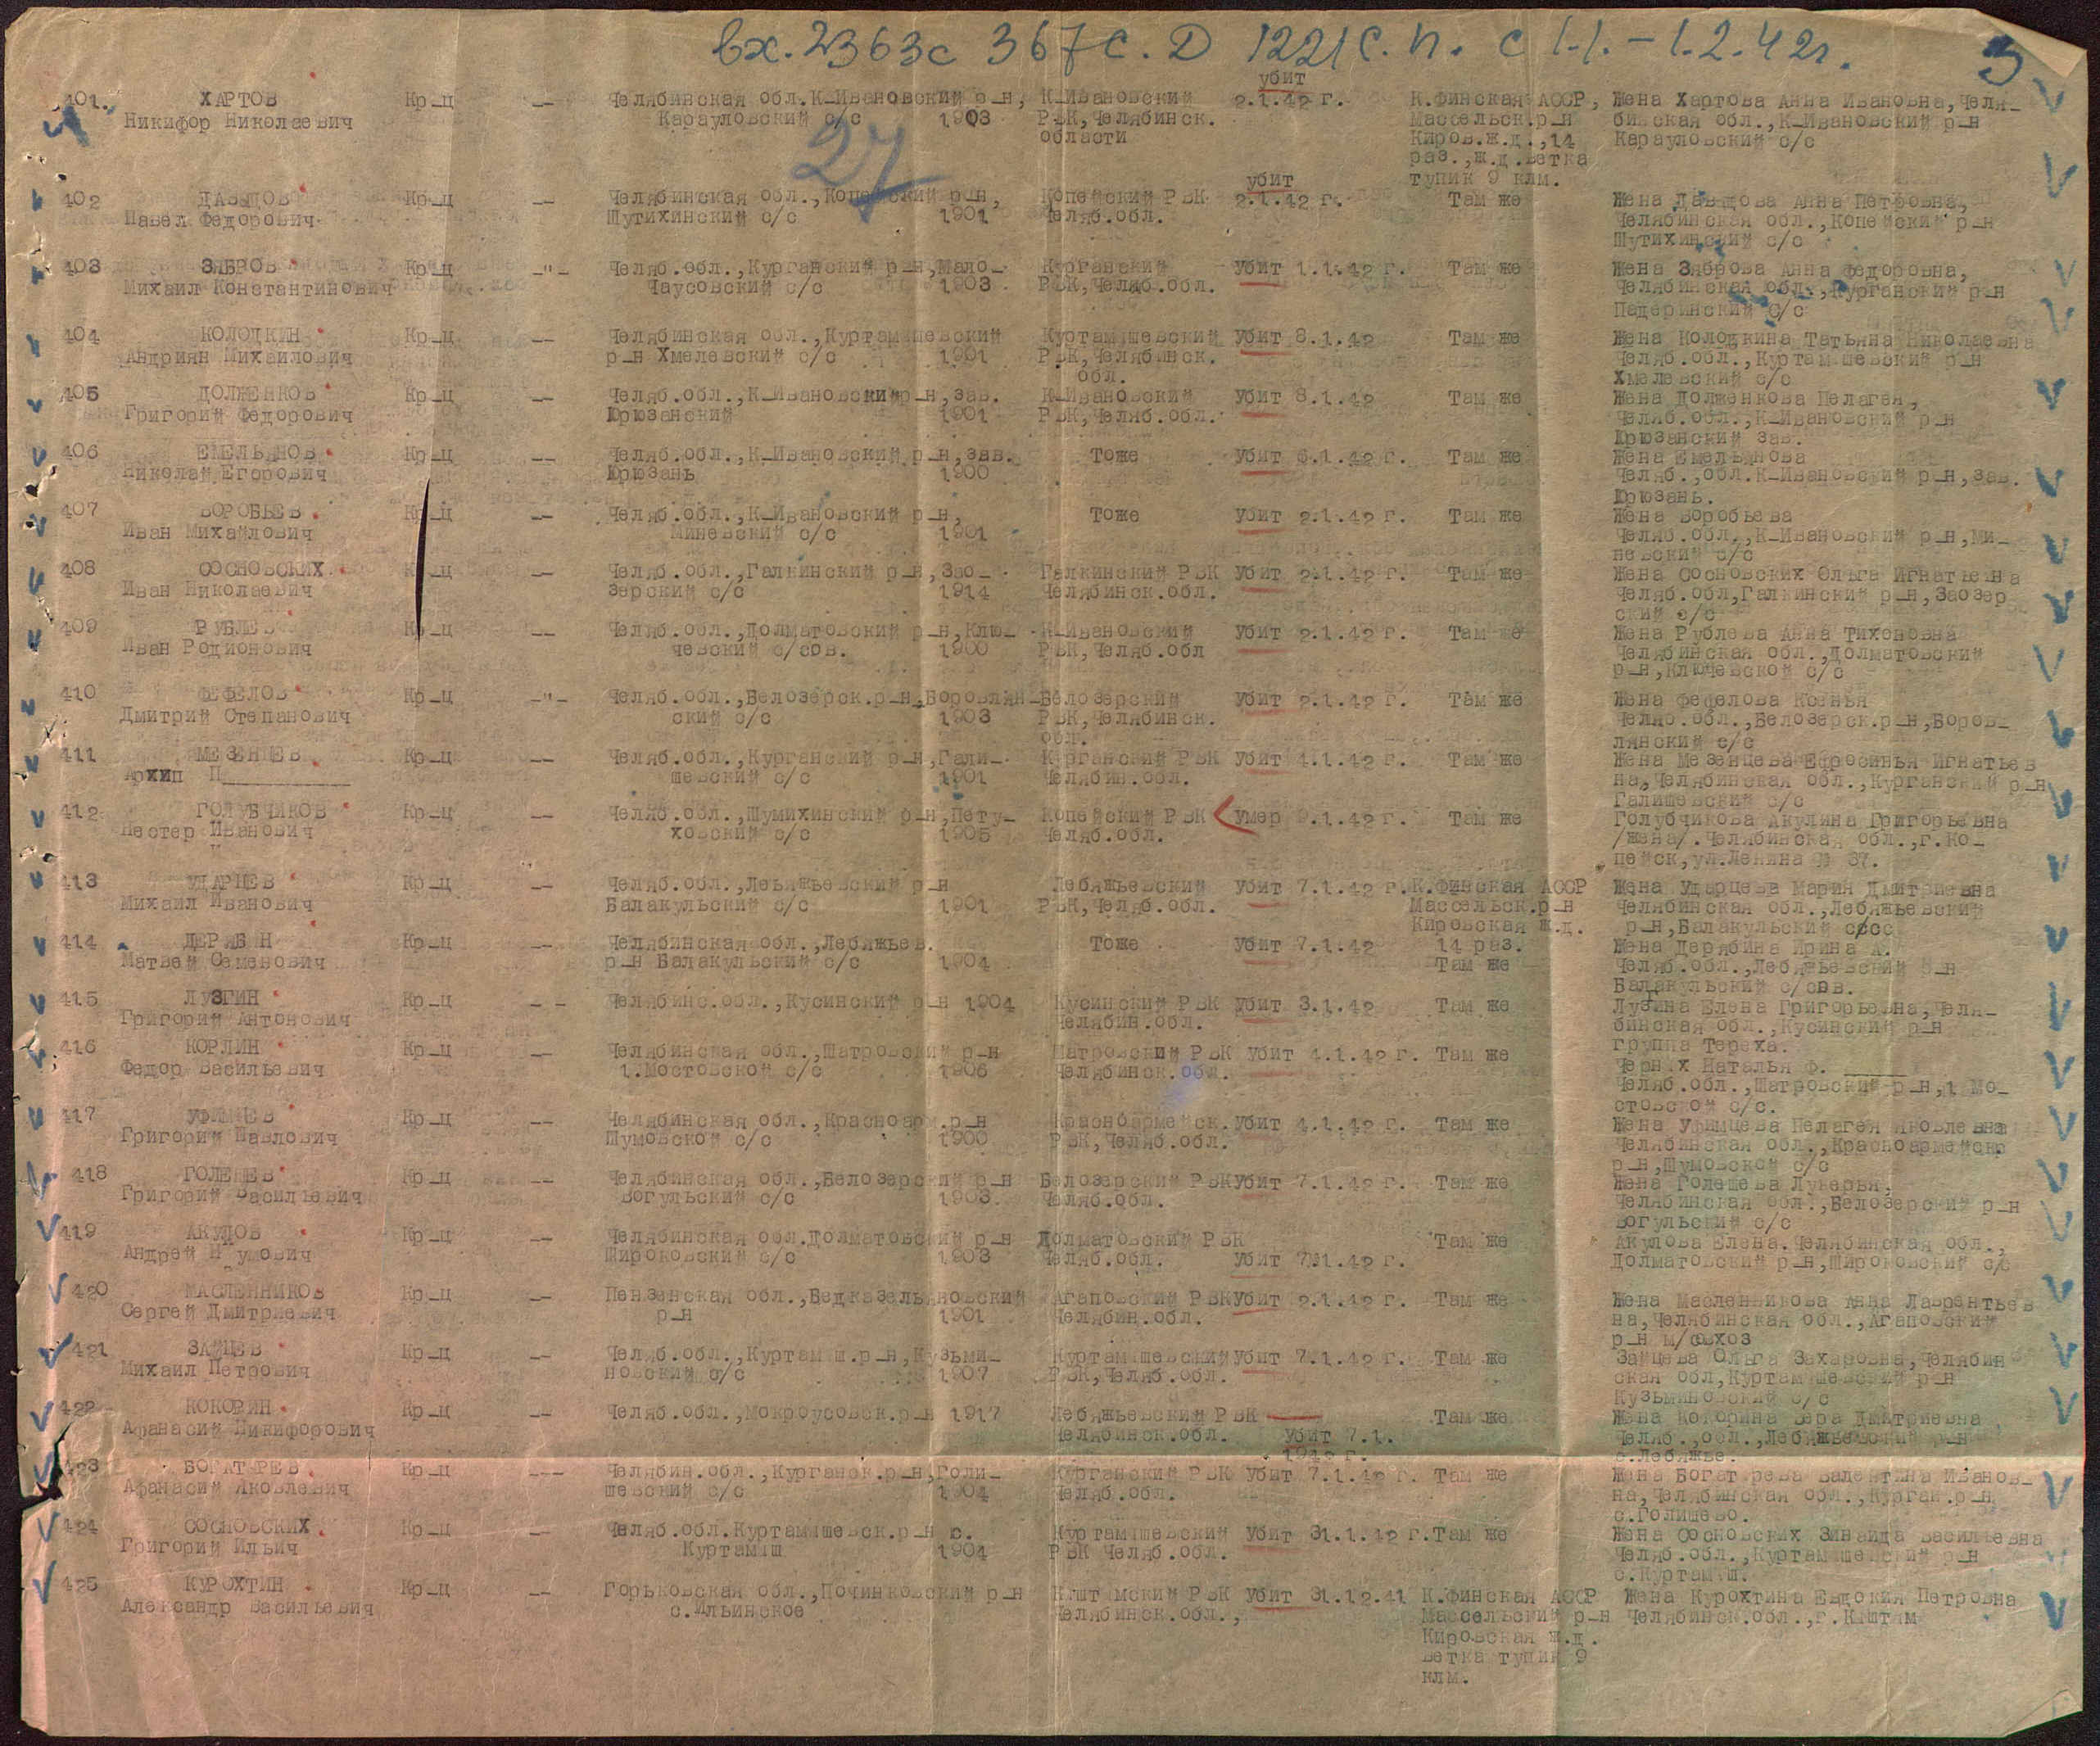 вх.2363с 367 С.Д 1221 С.П. с 1.1.-1.2.42г. 3
27
401. ХАРТОВ Никифор Николаевич Кр-ц -- Челябинская обл.К-Ивановский р-н, Карауловский с/с 1903 К-Ивановский РВК,Челябинск. области убит 2.1.42 г. К.Финская АССР, Массельск.р-н Киров.ж.д.,14 раз.,ж.д.ветка тупик 9 клм. Жена Хартова Анна Ивановна,Челя-бинская обл.,К-Ивановский р-н Карауловский с/с
402 ДАВЫДОВ Павел Федорович Кр-ц -- Челябинская обл.,Копейский р-н, Шутихинский с/с 1901 Копейский РВК Челяб.обл. убит 2.1.42 г. Там же Жена Давыдова Анна Петровна, Челябинская обл.,Копейский р-н Шутихинский с/с
403 ЗЯБРОВ Михаил Константинович Кр-ц -"- Челяб.обл.,Курганский р-н,Мало-Чаусовский с/с 1903 Курганский РВК,Челяб.обл. Убит 1.1.42 г. Там же Жена Зяброва Анна Федоровна, Челябинская обл.,Курганский р-н Падеринский с/с
404 КОЛОДКИН Андриян Михайлович Кр-ц -- Челябинская обл.,Куртамышевский р-н Хмелевский с/с 1901 Куртамышевский РВК,Челябинск. обл. Убит 8.1.42 Там же Жена Колодкина Татьяна Николаевна Челяб.обл.,Куртамышевский р-н Хмелевский с/с
405 ДОЛЖЕНКОВ Григорий Федорович Кр-ц -- Челяб.обл.,К-Ивановский р-н,зав. Юрюзанский 1901 К-Ивановский РВК,Челяб.обл. Убит 8.1.42 Там же Жена Долженкова Пелагея, Челяб.обл.,К-Ивановский р-н Юрюзанский зав.
406 ЕМЕЛЬЯНОВ Николай Егорович Кр-ц -- Челяб.обл.,К-Ивановский р-н,зав. Юрюзань 1900 Тоже Убит 6.1.42 г. Там же Жена Емельянова Челяб.,обл.К-Ивановский р-н,зав. Юрюзань.
407 ВОРОБЬЕВ Иван Михайлович Кр-ц -- Челяб.обл.,К-Ивановский р-н, Миневский с/с 1901 Тоже Убит 2.1.42 г. Там же Жена Воробьева Челяб.обл.,К-Ивановский р-н,Ми-невский с/с
408 СОСНОВСКИХ Иван Николаевич Кр-ц -- Челяб.обл.,Галкинский р-н,Зао-зерский с/с 1914 Галкинский РВК Челябинск.обл. Убит 2.1.42 г. Там же Жена Сосновских Ольга Игнатьевна Челяб.обл,Галкинский р-н,Заозер ский с/с
409 РУБЛЕВ Иван Родионович Кр-ц -- Челяб.обл.,Долматовский р-н,Клю-чевский с/сов. 1900 К-Ивановский РВК,Челяб.обл Убит 2.1.42 г. Там же Жена Рублева Анна Тихоновна Челябинская обл.,Долматовский р-н,Ключевской с/с
410 ФЕФЕЛОВ Дмитрий Степанович Кр-ц -"- Челяб.обл.,Белозерск.р-н,Боровлян-ский с/с 1903 Белозерский РВК,Челябинск. обл. Убит 2.1.42 г. Там же Жена Фефелова Ксенья Челяб.обл.,Белозерск.р-н,Боров-лянский с/с
411 МЕЗЕНЦЕВ Архип П Кр-ц -- Челяб.обл.,Курганский р-н,Гали-шевский с/с 1901 Курганский РВК Челябин.обл. Убит 4.1.42 г. Там же Жена Мезенцева Ефросинья Игнатьев на,Челябинская обл.,Курганский р-н Галишевский с/с
412 ГОЛУБЧИКОВ Нестер Иванович Кр-ц -- Челяб.обл.,Шумихинский р-н,Пету-ховский с/с 1905 Копейский РВК Челяб.обл. Умер 9.1.42 г. Там же Голубчикова Акулина Григорьевна /жена/.Челябинская обл.,г.Ко-пейск,ул.Ленина № 37.
413 УДАРЦЕВ Михаил Иванович Кр-ц -- Челяб.обл.,Лебяжьевский р-н Балакульский с/с 1901 Лебяжьевский РВК,Челяб.обл. Убит 7.1.42 г. К.Финская АССР Массельск.р-н Кировская ж.д. 14 раз. Жена Ударцева Мария Дмитриевна Челябинская обл.,Лебяжьевский р-н,Балакульский с/с
414 ДЕРЯБИН Матвей Семенович Кр-ц -- Челябинская обл.,Лебяжьев. р-н Балакульский с/с 1904 Тоже Убит 7.1.42 Там же Жена Дерябина Ирина А. Челяб.обл.,Лебяжьевский р-н Балакульский с/сов.
415 ЛУЗГИН Григорий Антонович Кр-ц -- Челябинс.обл.,Кусинский р-н 1904 Кусинский РВК Челябин.обл. Убит 3.1.42 Там же Лузгина Елена Григорьевна,Челя-бинская обл.,Кусинский р-н группа Тереха.
416 КОРЛИН Федор Васильевич Кр-ц -- Челябинская обл.,Шатровский р-н 1.Мостовской с/с 1906 Шатровский РВК Челябинск.обл. Убит 4.1.42 г. Там же Черных Наталья Ф. Челяб.обл.,Шатровский р-н,1 Мо-стовской с/с.
417 УФИМЦЕВ Григорий Павлович Кр-ц -- Челябинская обл.,Красноарм.р-н Шумовской с/с 1900 Красноармейск. РВК,Челяб.обл. Убит 4.1.42 г. Там же Жена Уфимцева Пелагея Яковлевна Челябинская обл.,Красноармейскр р-н,Шумовской с/с
418 ГОЛЕЩЕВ Григорий Васильевич Кр-ц -- Челябинская обл.,Белозерский р-н Вогульский с/с 1903 Белозерский РВК Челяб.обл. Убит 7.1.42 г. Там же Жена Голещева Лукерья, Челябинская обл.,Белозерский р-н Вогульский с/с
419 АКУЛОВ Андрей Наумович Кр-ц -- Челябинская обл.Долматовский р-н Широковский с/с 1903 Долматовский РВК Челяб.обл. Убит 7.1.42 г. Там же Акулова Елена.Челябинская обл., Долматовский р-н,Широковский с/с
420 МАСЛЕННИКОВ Сергей Дмитриевич Кр-ц -- Пензенская обл., р-н 1901 Агаповский РВК Челябин.обл. Убит 2.1.42 г. Там же Жена Масленникова Анна Лаврентьев на,Челябинская обл.,Агаповский р-н м/совхоз
421 ЗАЙЦЕВ Михаил Петрович Кр-ц -- Челяб.обл.,Куртамыш.р-н,Кузьми-новский с/с 1907 Куртамышевский РВК,Челяб.обл. Убит 7.1.42 г. Там же Зайцева Ольга Захаровна,Челябин ская обл,Куртамышевский р-н Кузьминовский с/с
422 КОКОРИН Афанасий Никифорович Кр-ц -- Челяб.обл.,Мокроусовск.р-н 1917 Лебяжьевский РВК Челябинск.обл. Убит 7.1. 1942 г. Там же Жена Кокорина Вера Дмитриевна Челяб.,обл.,Лебяжьевский р-н с.Лебяжье.
423 БОГАТЫРЕВ Афанасий Яковлевич Кр-ц --- Челябин.обл.,Курганск.р-н,Голи-шевский с/с 1904 Курганский РВК Челяб.обл. Убит 7.1.42 г. Там же Жена Богатырева Валентина Иванов-на,Челябинская обл.,Курган.р-н с.Голишево.
424 СОСНОВСКИХ Григорий Ильич Кр-ц -- Челяб.обл.Куртамышевск.р-н с. Куртамыш 1904 Куртамышевский РВК Челяб.обл. Убит 31.1.42 г. Там же Жена Сосновских Зинаида Васильевна Челяб.обл.,Куртамышевский р-н с.Куртамыш.
425 КУРОХТИН Александр Васильевич Кр-ц -- Горьковская обл.,Починковский р-н с.Ильинское Кыштымский РВК Челябинск.обл., Убит 31.12.41 К.Финская АССР Массельский р-н Кировская ж.д. ветка тупик 9 клм. Жена Курохтина Евдокия Петровна Челябинск.обл.,г.Кыштым